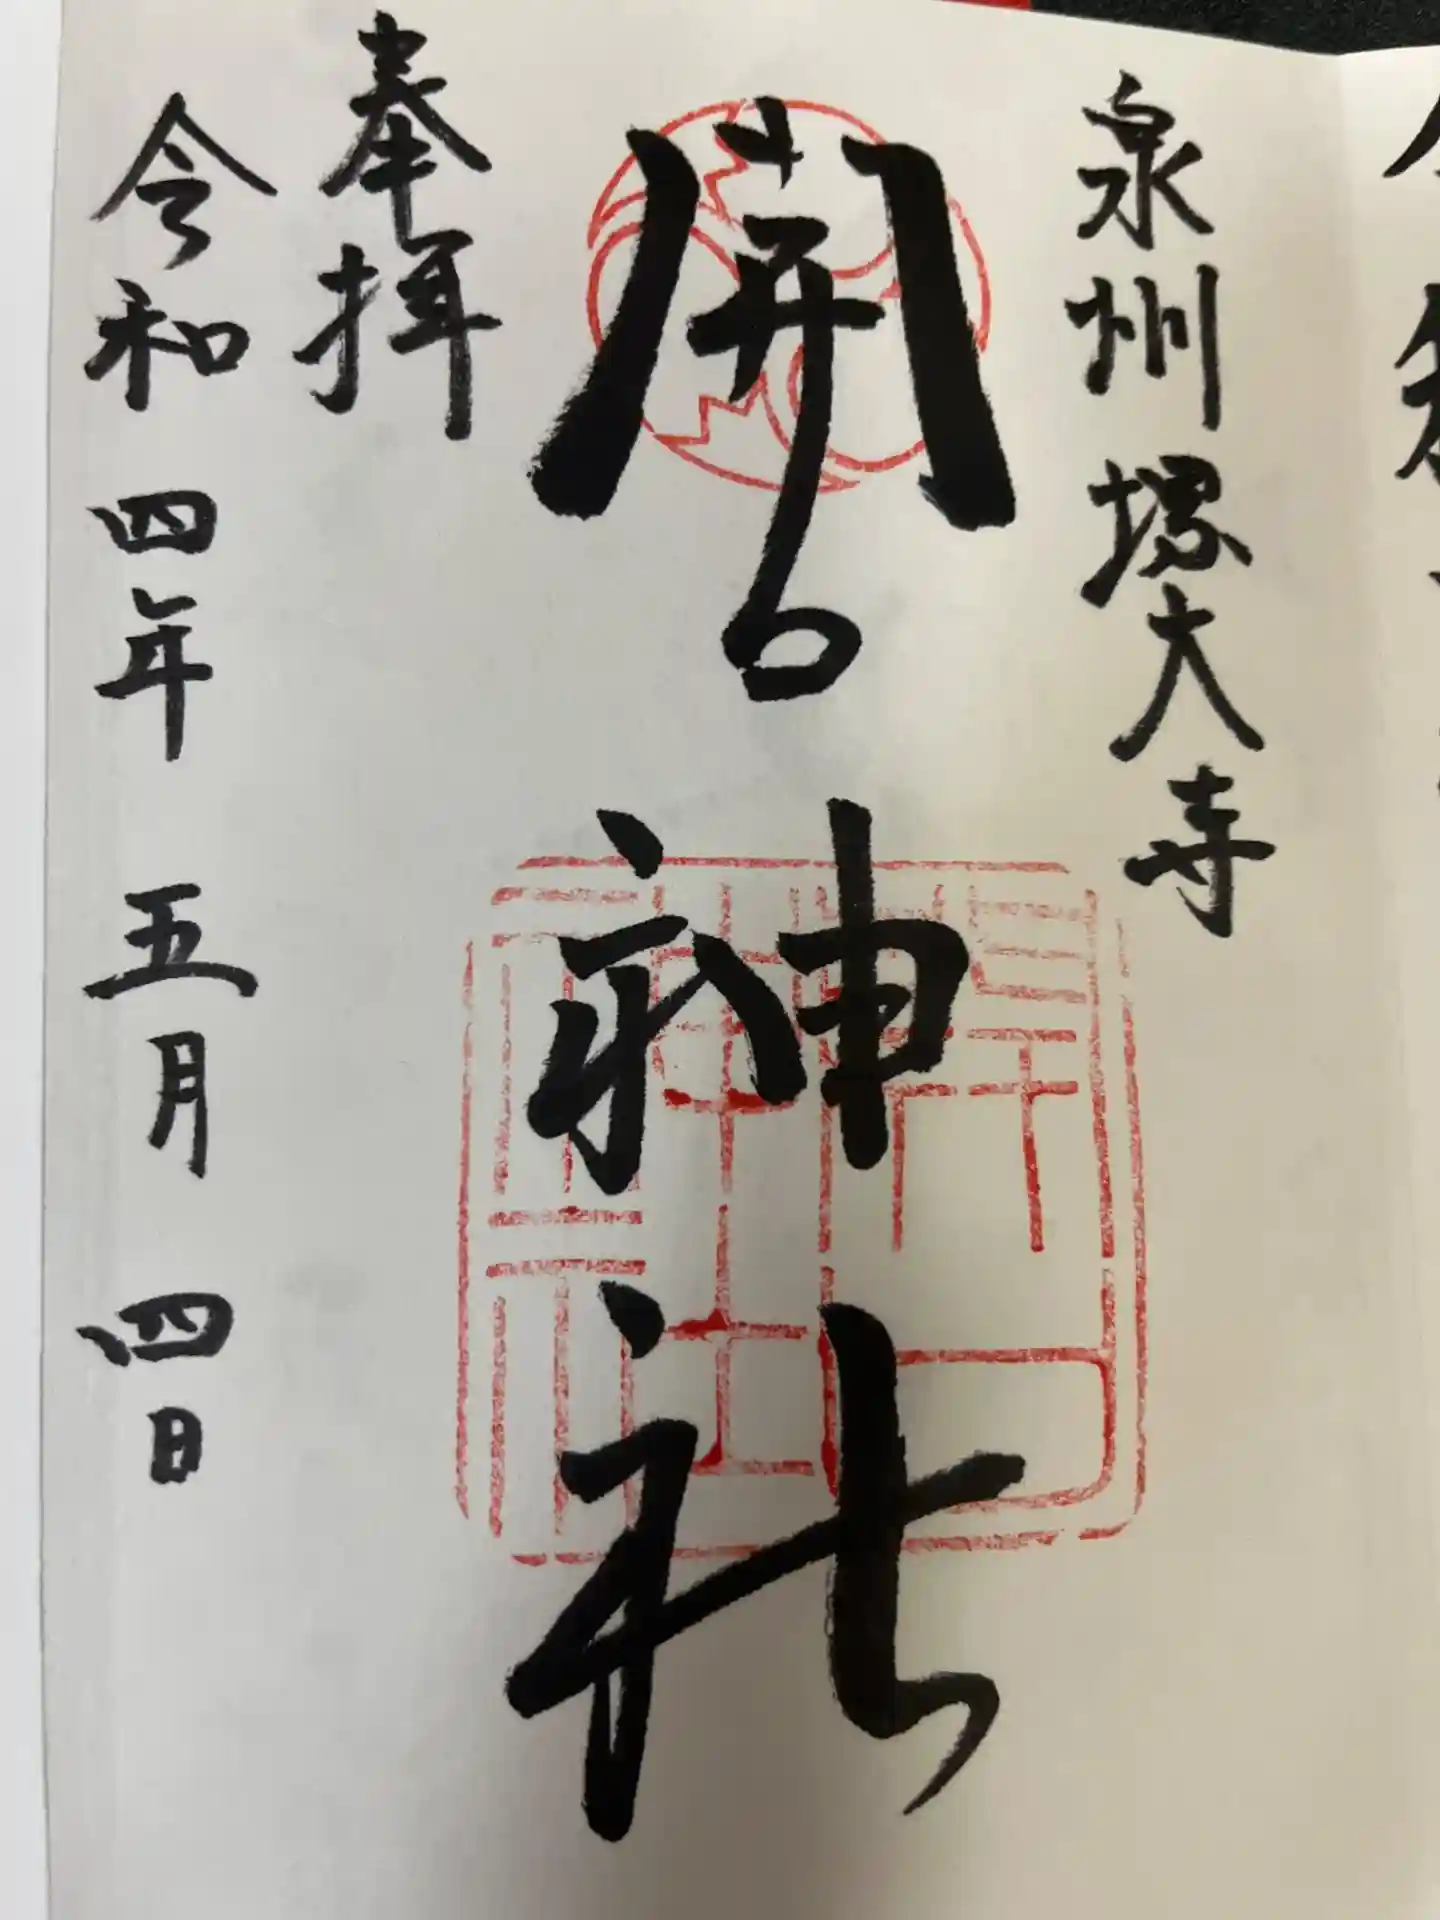 泉州堺大寺
開口神社
奉拝
令和四年五月四日